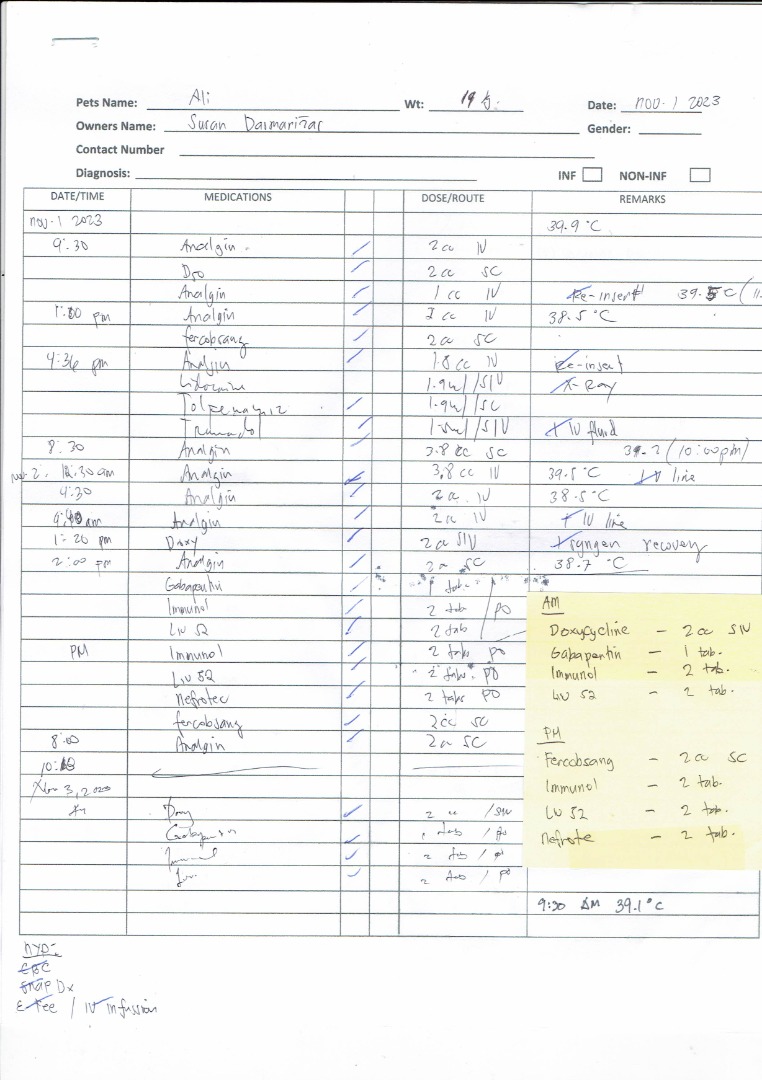 Pets Name: Ali Wt: 19 Date: nov. 1 2023
Owners Name: Susan Daimariñas Gender:
Contact Number
Diagnosis: INF NON-INF
DATE/TIME MEDICATIONS DOSE/ROUTE REMARKS
nov. 1 2023 39.9 °C
9:30 Analgin 2cc IV
2cc SC
Analgin 1 cc IV Re-insert
pm Analgin cc IV 38.5 °C
fercobsang 2cc SC
4:36 pm Analgin 1.8 cc IV Re-insert
Lidocaine 1.9ml / SIV X-Ray
1.9ml / SC
Tramadol / SIV IV fluid
8:30 Analgin 3.8 cc SC (10:00pm)
nov 2. :30 am Analgin 3.8 cc IV 39.5 °C IV line
4:30 Analgin 2cc IV 38.5 °C
am Analgin 2cc IV + IV line
1:20 pm Doxy 2cc SIV recovery
2:00 pm Analgin 2cc SC 38.7 °C
Gabapentin 1 tab
Immunol 2 tab / PO
LIV 52 2 tab
PM Immunol 2 tabs PO
LIV 52 2 tabs. PO
Nefrotec 2 tabs PO
fercobsang 2cc SC
8:00 Analgin 2cc SC
Nov 3, 2023
Doxy 2 cc / SIV
Gabapentin tab / PO
2 tab / PO
2 tab / PO
9:30 AM 39.1 °C
AM
Doxycycline - 2cc SIV
Gabapentin - 1 tab.
Immunol - 2 tab.
LIV 52 - 2 tab.
PM
Fercobsang - 2cc SC
Immunol - 2 tab.
LIV 52 - 2 tab.
Nefrote - 2 tab.
CBC
SNAP Dx
/ IV Infussion